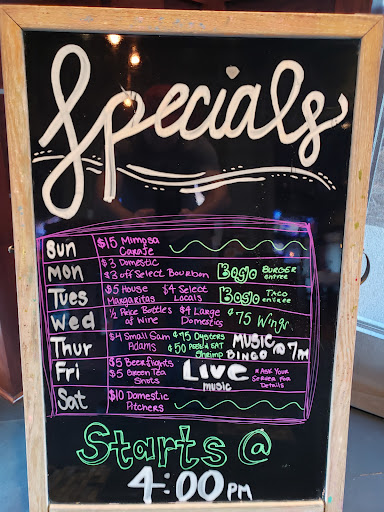 Specials
Sun $15 Mimosa Carafe
Mon $3 Domestic
$3 off Select Bourbon BOGO BURGER entree
Tues $5 House Margaritas $4 Select Locals BOGO TACO entree
Wed ½ Price Bottles of Wine $4 Large Domestics ¢75 Wings
Thur $4 Small Sam Adams ¢75 Oysters
¢50 Peel & Eat Shrimp MUSIC BINGO @ 7m
Fri $5 Beer flights
$5 Green Tea Shots Live music *ASK YOUR SERVER FOR Details
Sat $10 Domestic Pitchers
Starts @
4:00 PM